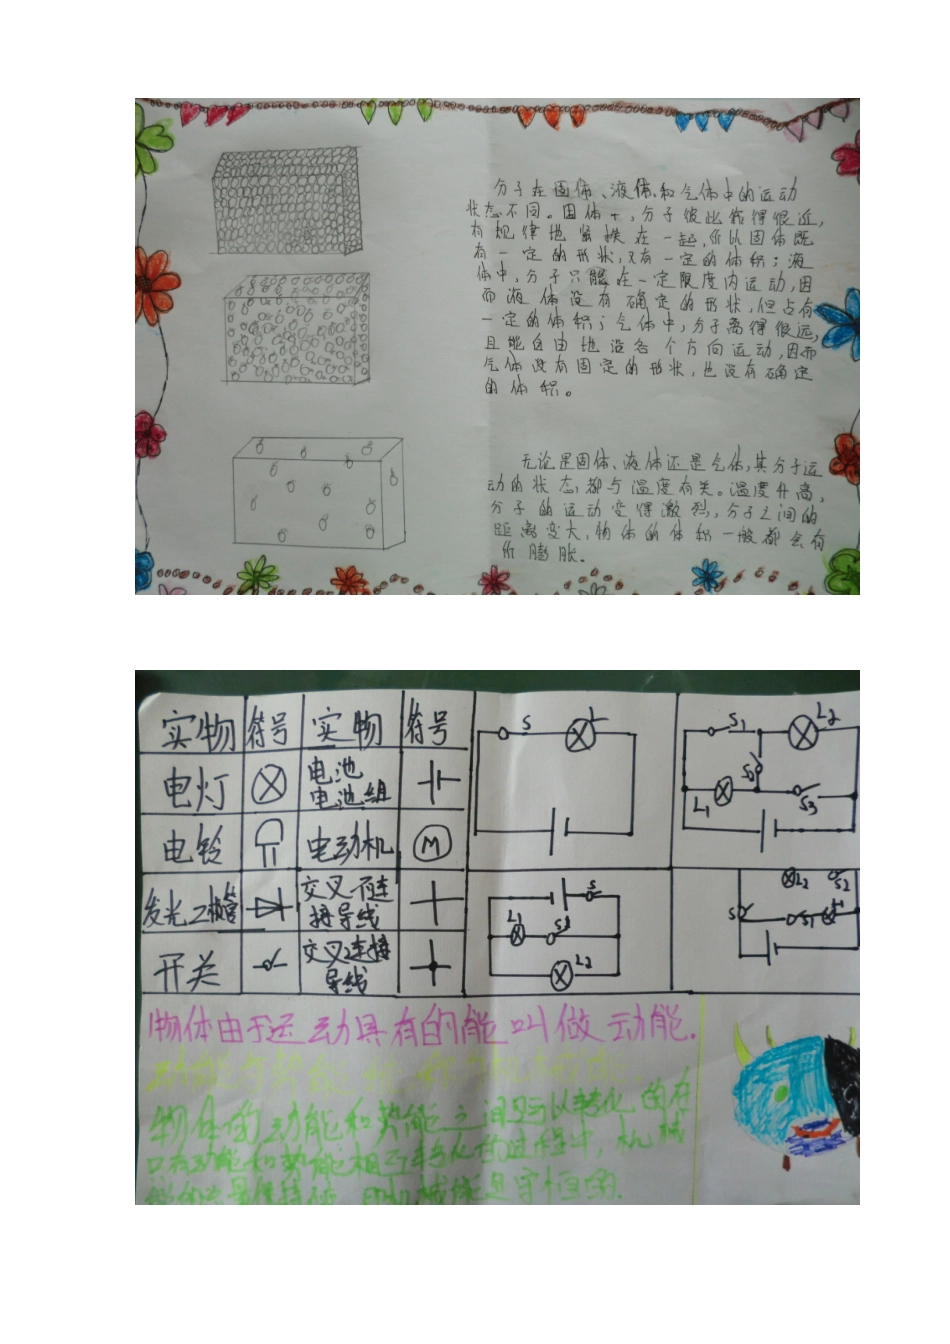 分子在固体、液体和气体中的运动
状态不同。固体中,分子彼此靠得很近,
有规律地紧挨在一起,所以固体既
有一定的形状,又有一定的体积;液
体中,分子只能在一定限度内运动,因
而液体没有确定的形状,但占有
一定的体积;气体中,分子离得很远,
且能自由地沿各个方向运动,因而
气体没有固定的形状,也没有确定
的体积。
无论是固体、液体还是气体,其分子运
动的状态都与温度有关。温度升高,
分子的运动变得激烈,分子之间的
距离变大,物体的体积一般都会有
所膨胀。
实物 符号 实物 符号
电灯 电池
电池组
电铃 电动机 M
发光二极管 交叉不连
接导线
开关 交叉连接
导线
S L
S1 L2
L1 S3
S
L1 S2
L2
L2 S2
S S1 L1
物体由于运动具有的能叫做动能.
物体的动能和势能之间可以转化的在
只有动能和势能相互转化的过程中,机械
能的总量保持 即机械能是守恒的.